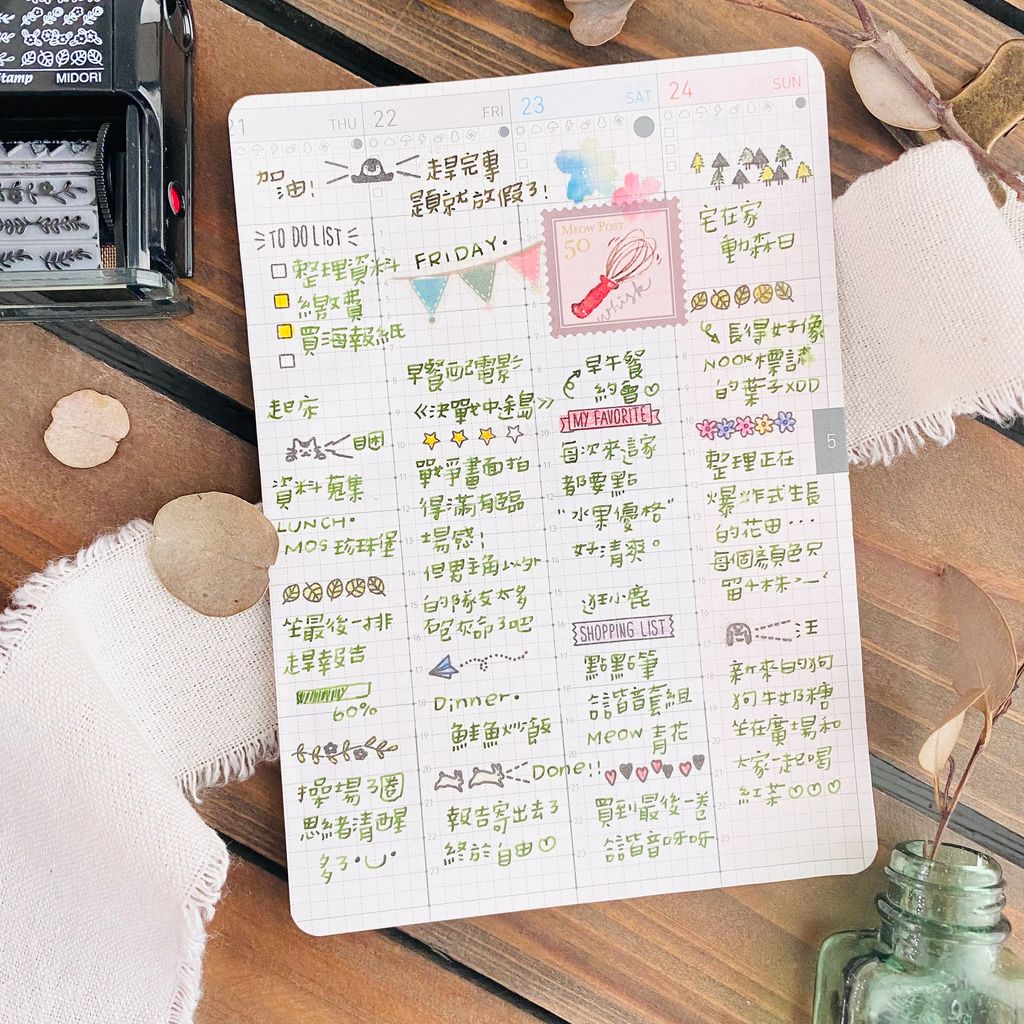 Stamp MIDORI
21 THU
22 FRI
23 SAT
24 SUN
5
加油!
TO DO LIST
整理資料
繳費
買海報紙
起床
困
資料蒐集
LUNCH.
MOS 珍珠堡
坐最後一排
趕報告
60%
操場3圈
思緒清醒
多了
趕完專
題就放假了!
FRIDAY.
早餐配電影
《決戰中途島》
戰爭畫面拍
得滿有臨
場感!
但男主角以外
的隊友太多
砲灰命了吧
Dinner.
鮭魚炒飯
Done!!
報告寄出去了
終於自由♡
MEOW POST
50
whisk
早午餐
約會♡
MY FAVORITE
每次來這家
都要點
"水果優格"
好清爽。
逛小鹿
SHOPPING LIST
點點筆
諧音套組
MEOW 青花
買到最後一卷
諧音呀呀
宅在家
動森日
長得好像
NOOK標誌
的葉子XDD
整理正在
爆炸式生長
的花田...
每個顏色只
留4株>_<
汪
新來的狗
狗牛奶糖
坐在廣場和
大家一起喝
紅茶♡♡♡